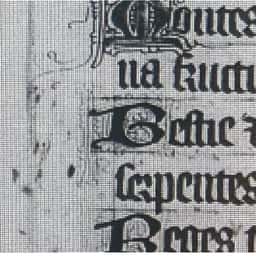 Montes
na fructi
Bestie
serpentes
Reges